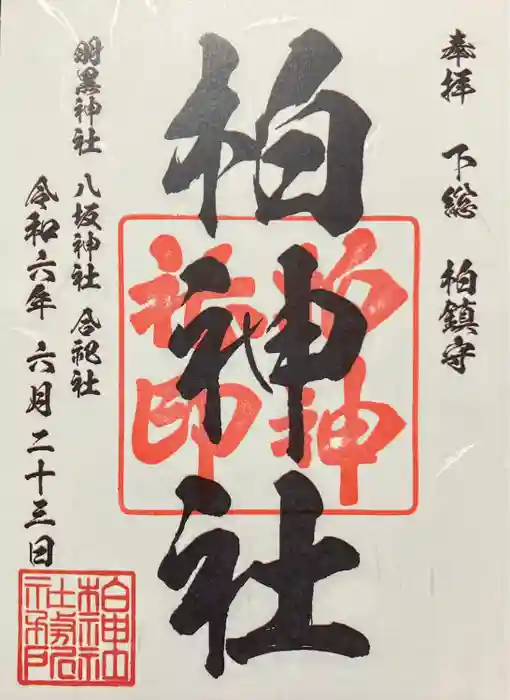 奉拝 下総 柏鎮守
柏神社
柏神社印
羽黒神社 八坂神社 合祀社
令和六年 六月二十三日
柏神社
社務所